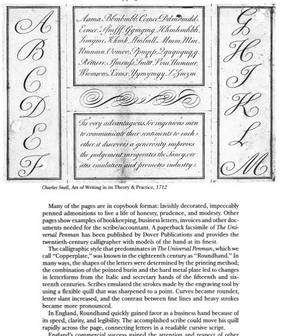 A
B
C
D
E
F
G
H
I
K
L
M
Tis very advantageous for ingenious men
to communicate their sentiments to each
other, it discovers a generosity improves
the judgement
emulation and promotes industry
Charles Snell, Art of Writing in its Theory & Practice, 1712
Many of the pages are in copybook format: lavishly decorated, impeccably
penned admonitions to live a life of honesty, prudence, and modesty. Other
pages show examples of bookkeeping, business letters, invoices and other doc-
uments needed for the scribe/accountant. A paperback facsimile of The Uni-
versal Penman has been published by Dover Publications and provides the
twentieth-century calligrapher with models of the hand at its finest.
The calligraphic style that predominates in The Universal Penman, which we
call "Copperplate," was known in the eighteenth century as "Roundhand." In
many ways, the shapes of the letters were determined by the printing method;
the combination of the pointed burin and the hard metal plate led to changes
in letterforms from the Italic and secretary hands of the fifteenth and six-
teenth centuries. Scribes emulated the strokes made by the engraving tool by
using a flexible quill that was sharpened to a point. Curves became rounder,
letter slant increased, and the contrast between fine lines and heavy strokes
became more pronounced.
In England, Roundhand quickly gained favor as a business hand because of
its speed, clarity, and legibility. The accomplished scribe could move his quill
rapidly across the page, connecting letters in a readable cursive script.
England's commercial success gained the attention and respect of other